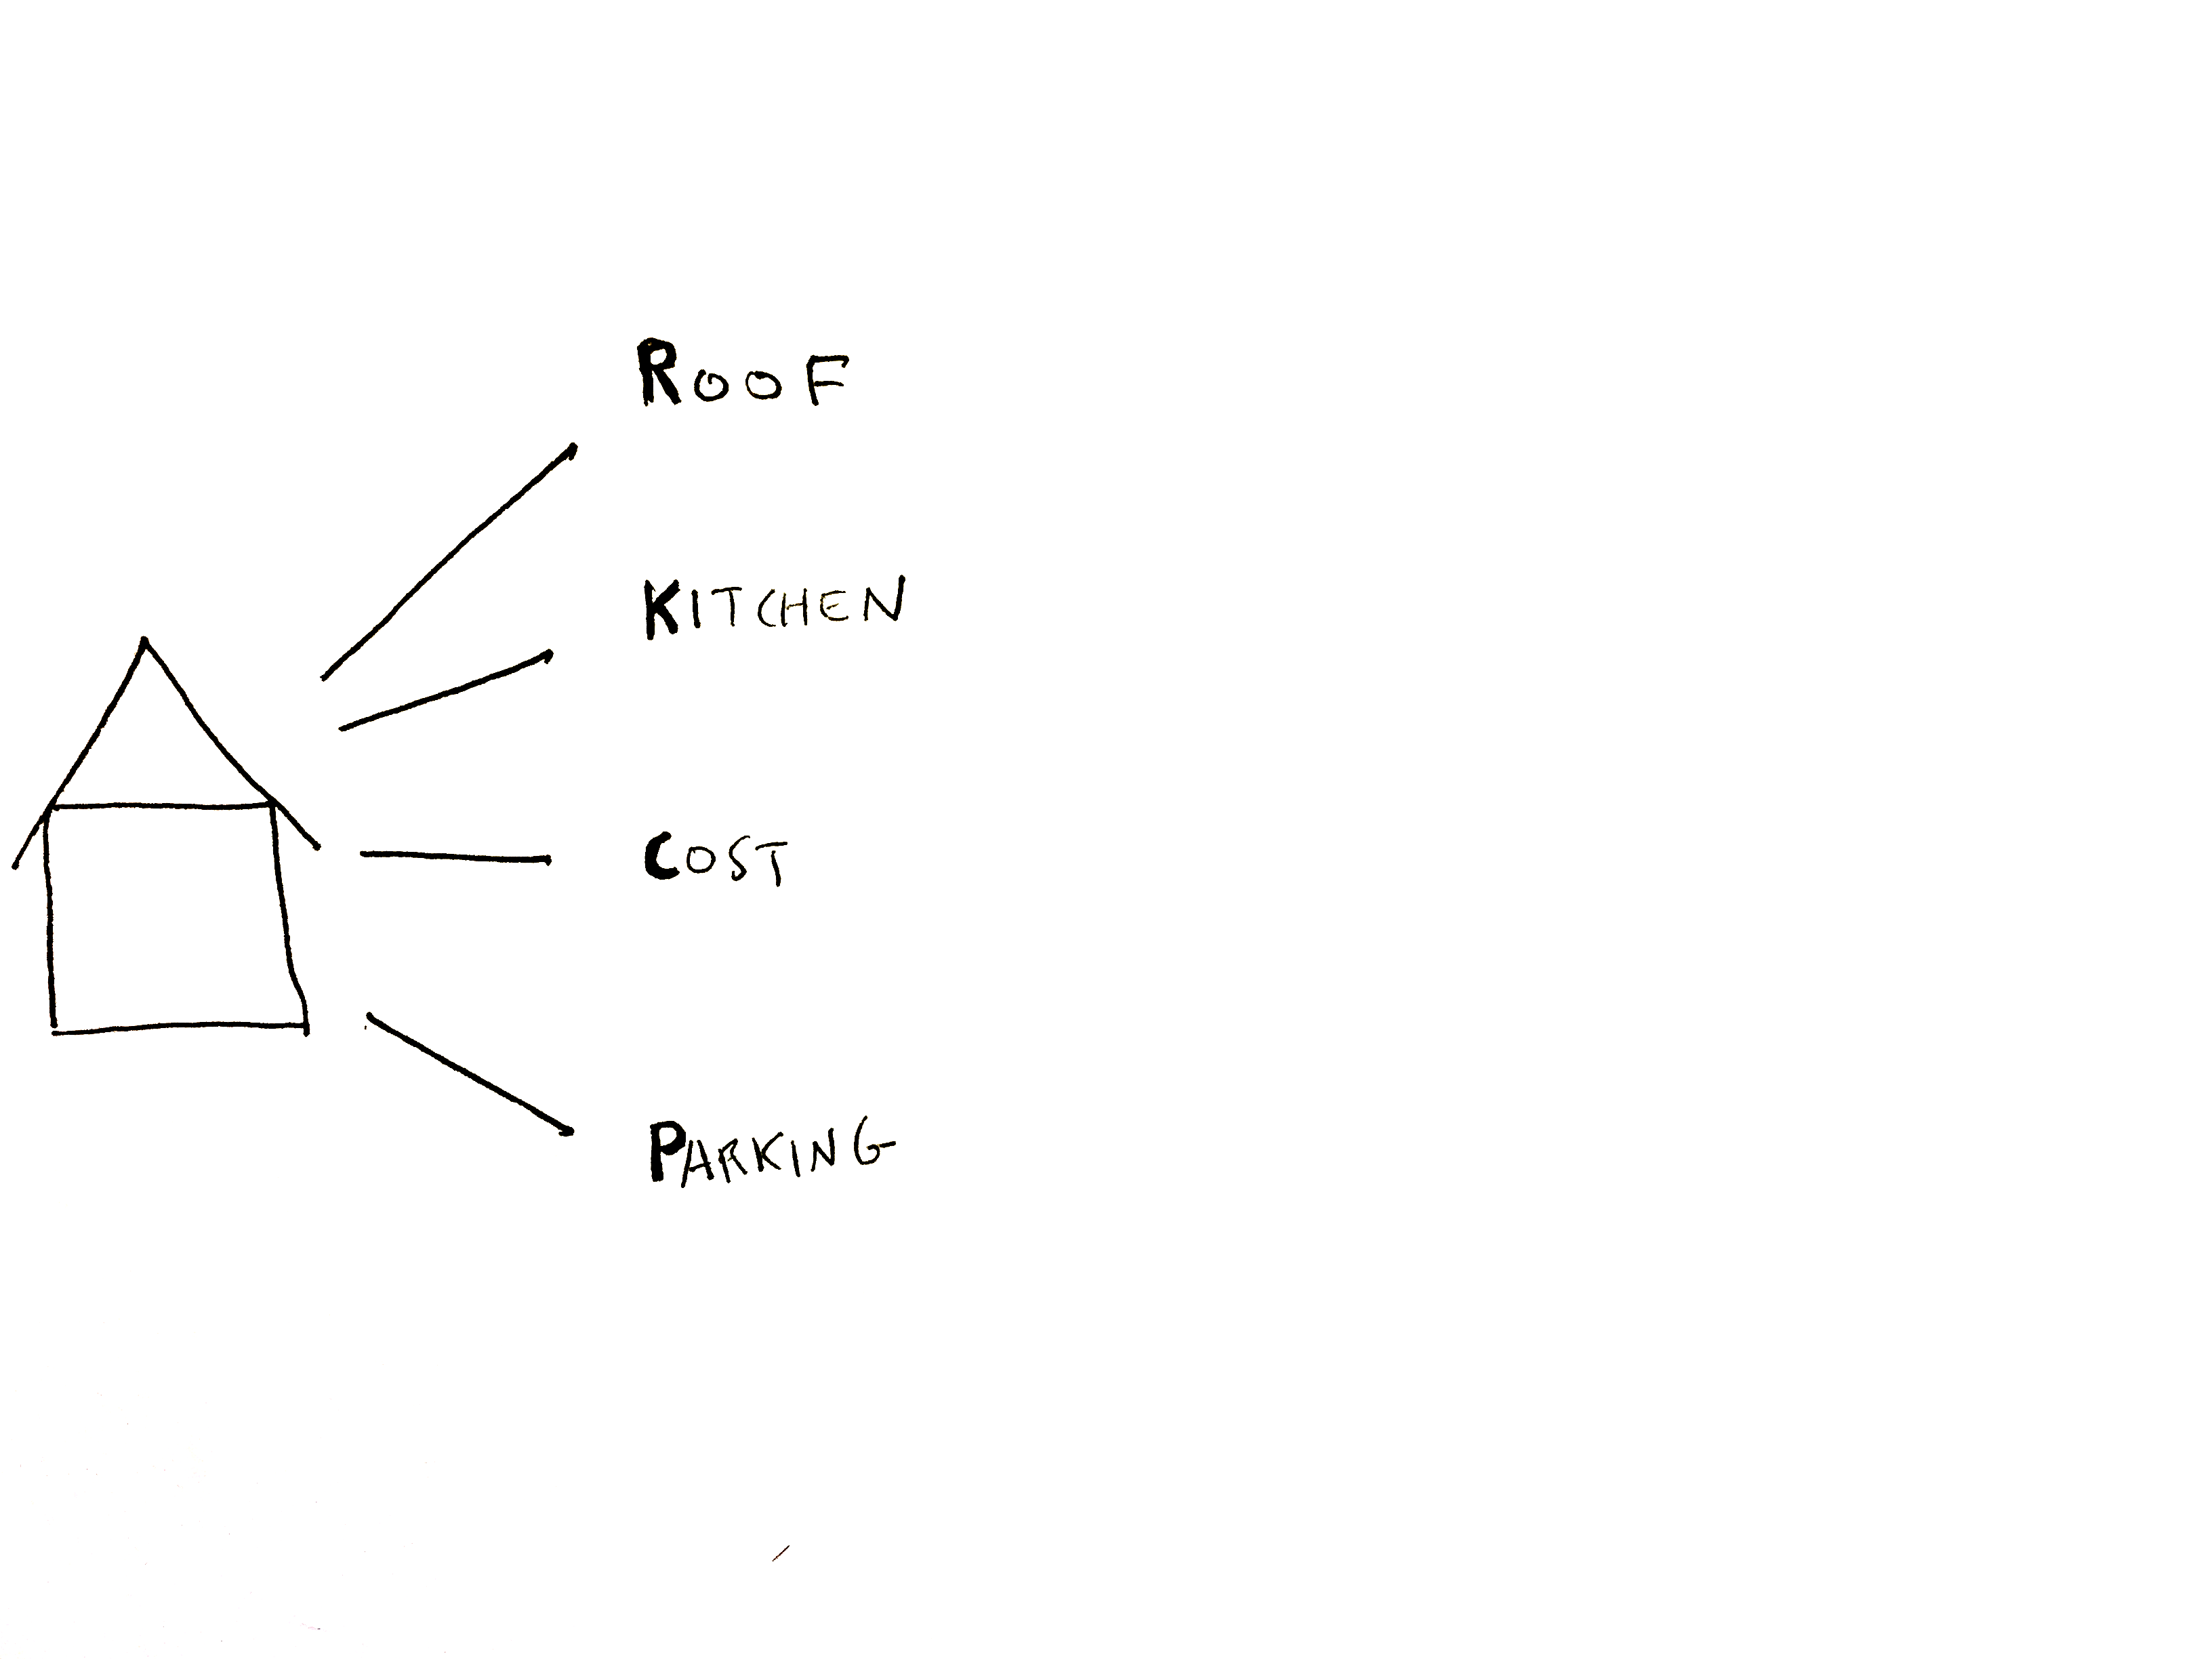 ROOF
KITCHEN
COST
PARKING